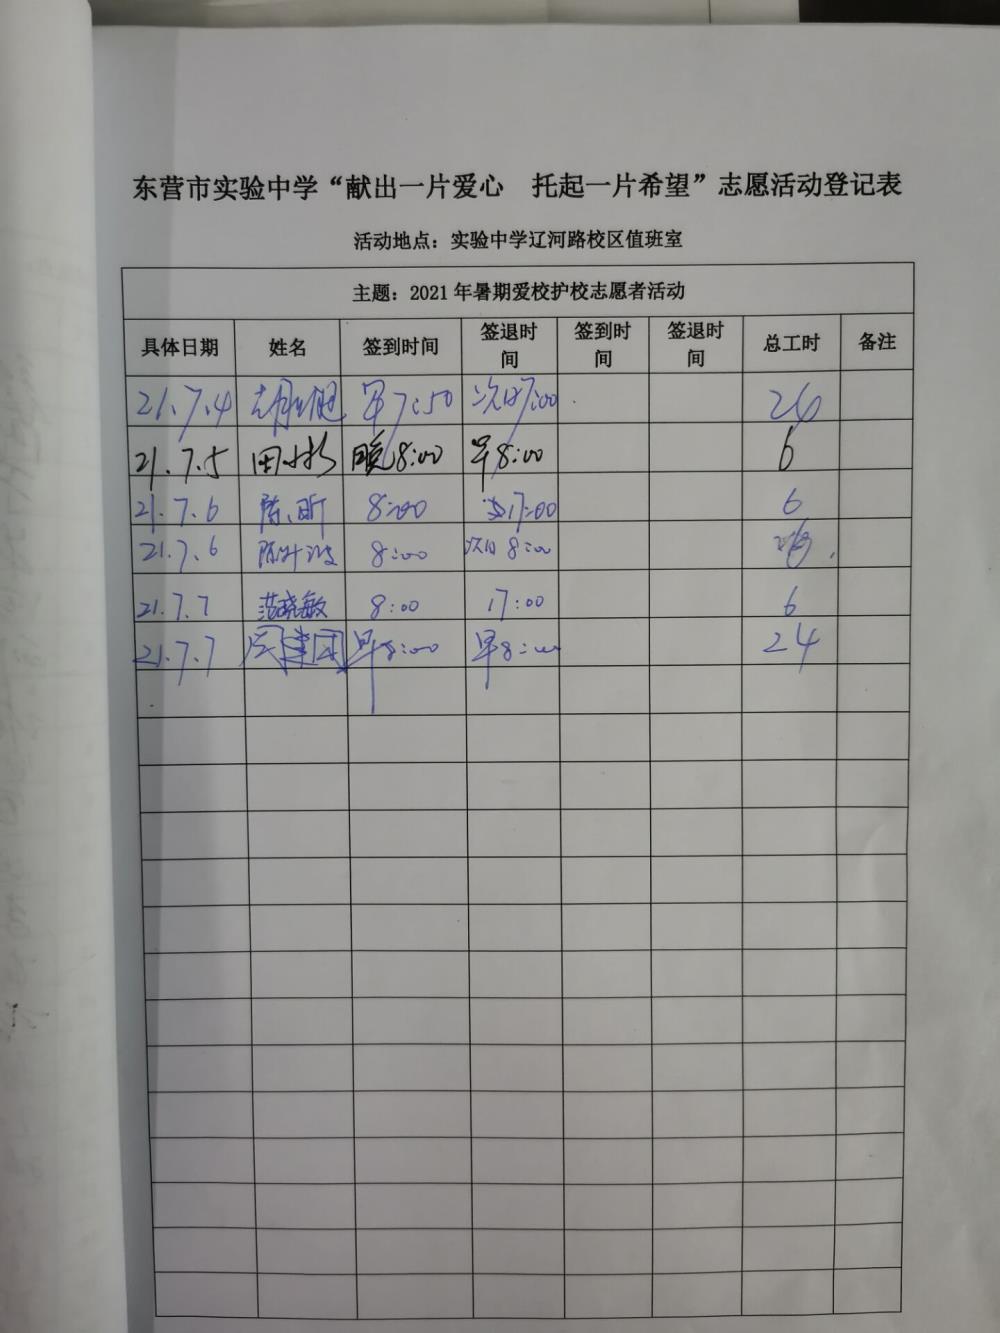 东营市实验中学“献出一片爱心 托起一片希望”志愿活动登记表
活动地点：实验中学辽河路校区值班室
主题：2021年暑期爱校护校志愿者活动
具体日期 姓名 签到时间 签退时间 签到时间 签退时间 总工时 备注
21.7.4 早7:50 次日7:00
21.7.5 田 晚8:00 早8:00 6
21.7.6 陈昕 8:00 17:00 6
21.7.6 陈 8:00 次日8:00
21.7.7 范晓敏 8:00 17:00 6
21.7.7 建国 早8:00 早8:00 24